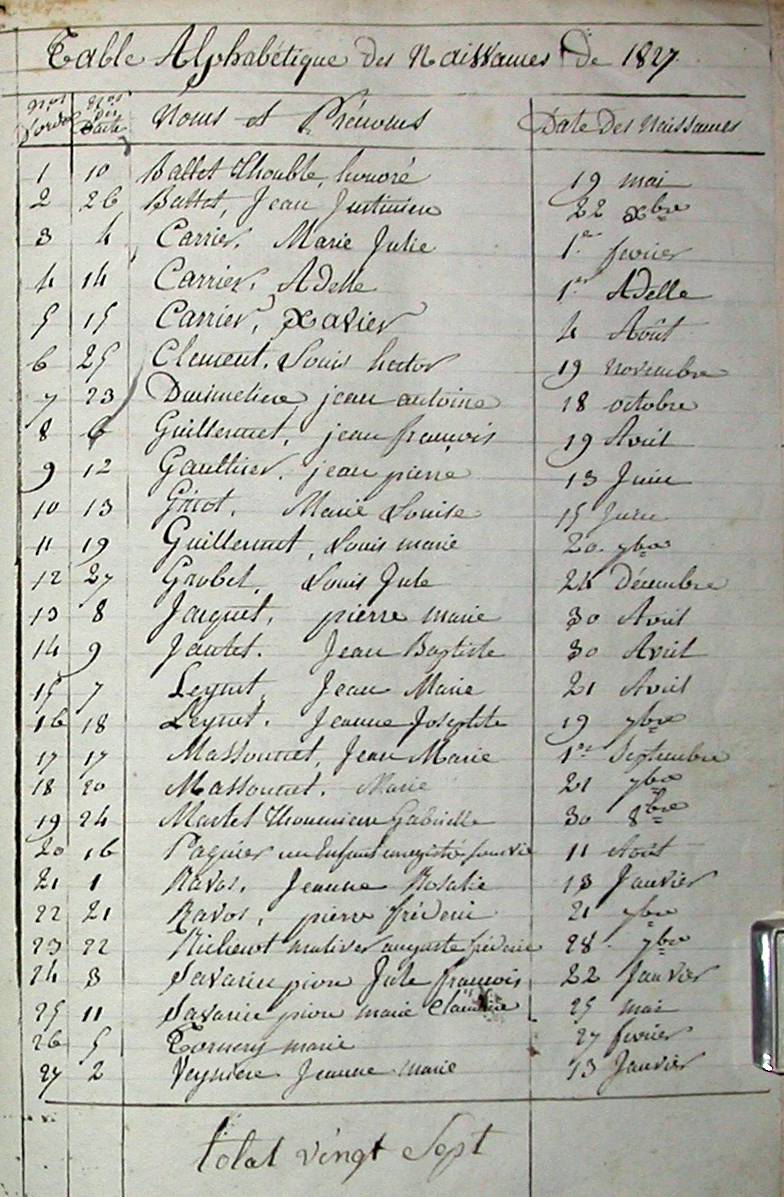 Table Alphabétique Des Naissances De 1827
Nos d'ordre Nos des Actes Noms et Prénoms Date Des Naissances
1 10 Ballet Thouble, honoré 19 mai
2 26 Battet, Jean Justinien 22 xbre
3 4 Carrier, Marie Julie 1er fevrier
4 14 Carrier, Adelle 1er Adelle
5 15 Carrier, Xavier 4 Août
6 25 Clement, Louis hector 19 novembre
7 23 jean antoine 18 octobre
8 6 Guillermet, jean françois 19 Avril
9 12 Gaulthier, jean pierre 13 Juin
10 13 Marie Louise 15 Juin
11 19 Guillermet, Louis marie 20 7bre
12 27 Grobel, Louis Jule 24 Décembre
13 8 Jacquet, pierre marie 30 Avril
14 9 Jantet. Jean Baptiste 30 Avril
15 7 Leynet, Jean Marie 21 Avril
16 18 Leynet, Jeanne Josephte 19 7bre
17 17 Massonnet, Jean Marie 1er Septembre
18 20 Massonnet. Marie 21 7bre
19 24 Martel Gabrielle 30 8bre
20 16 Paquier un Enfant enregistré sans vie 11 Août
21 1 Ravos, Jeanne Rosalie 13 Janvier
22 21 Ravos, pierre fréderic 21 7bre
23 22 auguste fréderic 28 7bre
24 3 Savarin pion Jule françois 22 Janvier
25 11 Savarin pion marie Claudine 25 mai
26 5 marie 27 fevrier
27 2 Jeanne marie 13 Janvier
total vingt Sept